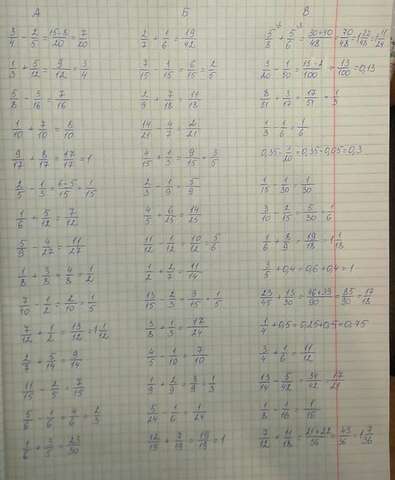 А
3/4 - 2/5 = 15-8/20 = 7/20
1/3 + 5/12 = 9/12 = 3/4
5/8 - 3/16 = 7/16
1/10 + 7/10 = 8/10
9/17 + 8/17 = 17/17 = 1
2/5 - 1/3 = 6-5/15 = 1/15
1/6 + 5/12 = 7/12
5/9 - 4/27 = 11/27
1/8 + 3/8 = 4/8 = 1/2
7/10 - 1/2 = 2/10 = 1/5
7/12 + 1/2 = 13/12 = 1 1/12
2/7 + 5/14 = 9/14
11/15 - 2/5 =
5/6 - 1/6 = 4/6 = 2/3
1/6 + 3/5 = 23/30
Б
2/7 + 1/6 = 19/42
7/15 - 1/15 = 6/15 = 2/5
2/9 + 7/18 = 11/18
14/21 - 4/7 = 2/21
4/15 + 1/3 = 9/15 = 3/5
2/3 - 1/9 = 5/9
4/5 - 6/25 = 14/25
11/12 - 1/12 = 10/12 = 5/6
1/2 + 2/7 = 11/14
13/15 - 2/3 = 3/15 = 1/5
3/8 + 1/3 = 17/24
4/5 - 1/10 = 7/10
1/9 + 2/9 = 3/9 = 1/3
5/24 - 1/6 = 1/24
12/19 + 7/19 = 19/19 = 1
В
5/8 + 5/6 = 30+40/48 = 70/48 = 1 22/48 = 1 11/24
3/20 - 1/50 = 15-2/100 = 13/100 = 0,13
8/51 + 3/17 = 17/51 = 1/3
1/3 - 1/6 = 1/6
0,35 - 1/20 = 0,35 - 0,05 = 0,3
1/15 - 1/30 = 1/30
3/10 - 2/15 = 5/30 = 1/6
1/6 + 8/9 = 19/18 = 1 1/18
3/5 + 0,4 = 0,6 + 0,4 = 1
23/45 + 13/30 = 46+39/90 = 85/90 = 17/18
1/4 + 0,5 = 0,25 + 0,5 = 0,75
3/4 + 1/6 = 11/12
13/14 - 5/42 = 34/42 = 17/21
7/12 + 11/18 = 21+22/36 = 43/36 = 1 7/36